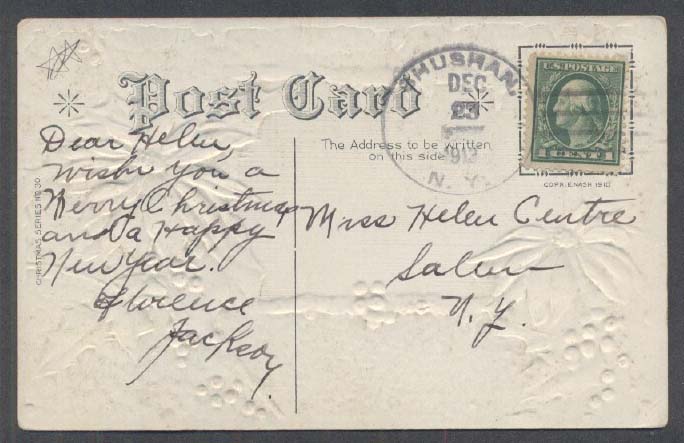 Post Card
SHUSHAN,
DEC
23
1913
N. Y.
U.S. POSTAGE
1 CENT 1
COPR. E. NASH 1910
The Address to be written
on this side
CHRISTMAS SERIES NO. 30
Dear Helen,
Wishe you a
Merry Christmas
and a Happy
New Year.
Florence
Jackson.
Miss Helen Centre
Salem
N. Y.